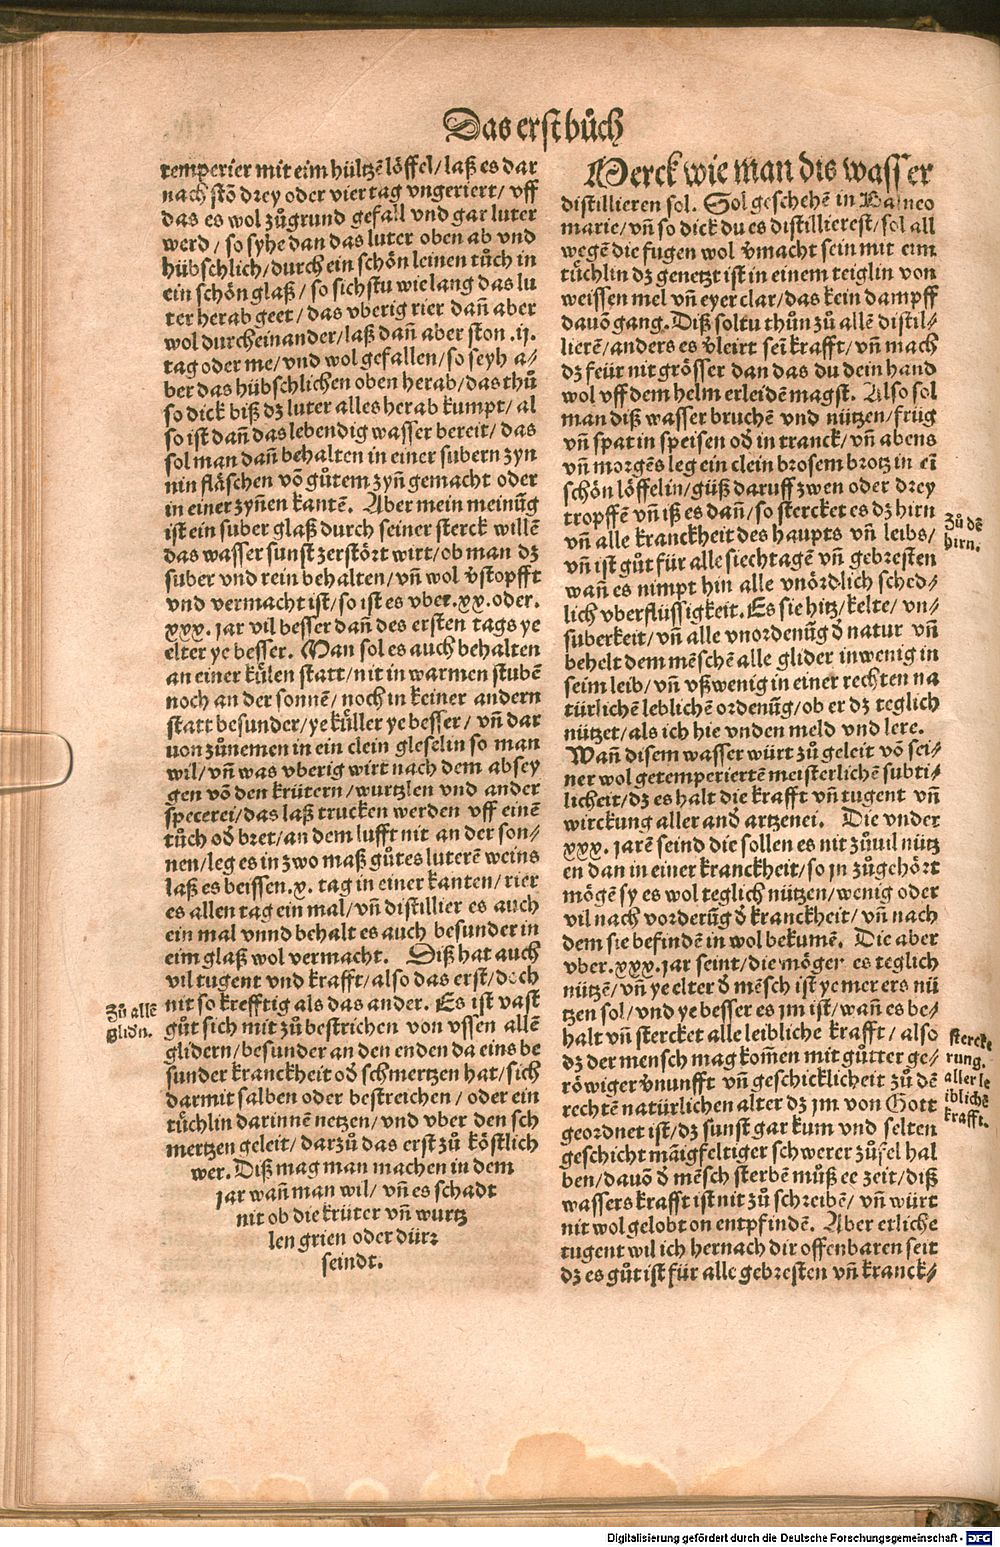 Das erst bůch
temperier mit eim hültzē löffel/laß es dar
nach stō drey oder vier tag vngeriert/vff
das es wol zůgrund gefall vnd gar luter
werd/so syhe dan das luter oben ab vnd
hübschlich/durch ein schön leinen tůch in
ein schön glaß/so sichstu wie lang das lu
ter herab geet/das vberig rier dañ aber
wol durcheinander/laß dañ aber ston .ij.
tag oder me/vnd wol gefallen/so seyh a⸗
ber das hübschlichen oben herab/das thů
so dick biß dz luter alles herab kumpt/al
so ist dañ das lebendig wasser bereit/das
sol man dañ behalten in einer subern zyn
nin fläschen vō gůtem zyñ gemacht oder
in einer zyñen kantē. Aber mein meinūg
ist ein suber glaß durch seiner sterck willē
das wasser sunst zerstört wirt/ob man dz
suber vnd rein behalten/vñ wol v̄stopfft
vnd vermacht ist/so ist es vber.xx.oder.
xxx. jar vil besser dañ des ersten tags ye
elter ye besser. Man sol es auch behalten
an einer külen statt/nit in warmen stubē
noch an der sonnē/noch in keiner andern
statt besunder/ye küller ye besser/vñ dar
von zůnemen in ein clein gleselin so man
wil/vñ was vberig wirt nach dem absey
gen vō den krütern/wurtzlen vnd ander
specerei/das laß trucken werden vff einē
tůch od̄ bret/an dem lufft nit an der son⸗
nen/leg es in zwo maß gůtes luterē weins
laß es beissen.x. tag in einer kanten/rier
es allen tag ein mal/vñ distillier es auch
ein mal vnnd behalt es auch besunder in
eim glaß wol vermacht. Diß hat auch
vil tugent vnd krafft/also das erst/doch
nit so krefftig als das ander. Es ist vast
gůt sich mit zů bestrichen von vssen allē
glidern/besunder an den enden da eins be
sunder kranckheit od̄ schmertzen hat/sich
darmit salben oder bestreichen/oder ein
tüchlin darinnen netzen/vnd vber den sch
mertzen geleit/darzů das erst zů köstlich
wer. Diß mag man machen in dem
jar wañ man wil/vñ es schadt
nit ob die krüter vñ wurtz
len grien oder dürr
seindt.
Zů allē
glidn.
Merck wie man dis wasser
distillieren sol. Sol geschehē in Balneo
marie/vñ so dick du es distillierest/sol all
wegē die fugen wol v̄macht sein mit eim
tüchlin dz genetzt ist in einem teiglin von
weissen mel vñ eyer clar/das kein dampff
dauō gang. Diß soltu thůn zů allē distil⸗
lierē/anders es v̄leirt sei krafft/vñ mach
dz feür nit grösser dan das du dein hand
wol vff dem helm erleidē magst. Also sol
man diß wasser bruchē vnd nützen/früg
vñ spat in speisen od̄ in tranck/vñ abens
vñ morgēs leg ein clein brosem brotz in eī
schön löffelin/güß daruff zwen oder drey
tropffē vñ iß es dañ/so stercket es dz hirn
vñ alle kranckheit des haupts vñ leibs/
vñ ist gůt für alle siechtagē vñ gebresten
wañ es nimpt hin alle vnördlich sched⸗
lich vberflüssigkeit. Es sie hitz/kelte/vn⸗
suberkeit/vñ alle vnordenūg d̄ natur vñ
behelt dem mēschē alle glider inwenig in
seim leib/vñ vßwenig in einer rechten na
türlichē leblichē ordenūg/ob er dz teglich
nützet/als ich hie vnden meld vnd lere.
Wañ disem wasser würt zů geleit vō sei⸗
ner wol getemperiertē meisterlichē subti⸗
licheit/dz es halt die krafft vñ tugent vñ
wirckung aller and̄ artzenei. Die vnder
xxx. jarē seind die sollen es nit zůuil nütz
en dan in einer kranckheit/so jn zůgehört
mögē sy es wol teglich nützen/wenig oder
vil nach vorderūg d̄ kranckheit/vñ nach
dem sie befindē in wol bekumē. Die aber
vber.xxx.jar seint/die mögen es teglich
nützē/vñ ye elter d̄ mēsch ist ye mer ers nü
tzen sol/vnd ye besser es jm ist/wañ es be⸗
halt vñ stercket alle leibliche krafft/also
dz der mensch mag kom̄en mit gůtter ge⸗
röwiger v̄nunfft vñ geschicklicheit zů dē
rechtē natürlichen alter dz jm von Gott
geordnet ist/dz sunst gar kum vnd selten
geschicht māigfeltiger schwerer zůfel hal
ben/dauō d̄ mēsch sterbē můß ee zeit/diß
wassers krafft ist nit zů schreibē/vñ würt
nit wol gelobt on entpfindē. Aber erliche
tugent wil ich hernach dir offenbaren seit
dz es gůt ist für alle gebresten vñ kranck⸗
Zů dē
hirn.
stercke
rung.
aller le
iblichē
krafft.
Digitalisierung gefördert durch die Deutsche Forschungsgemeinschaft - DFG